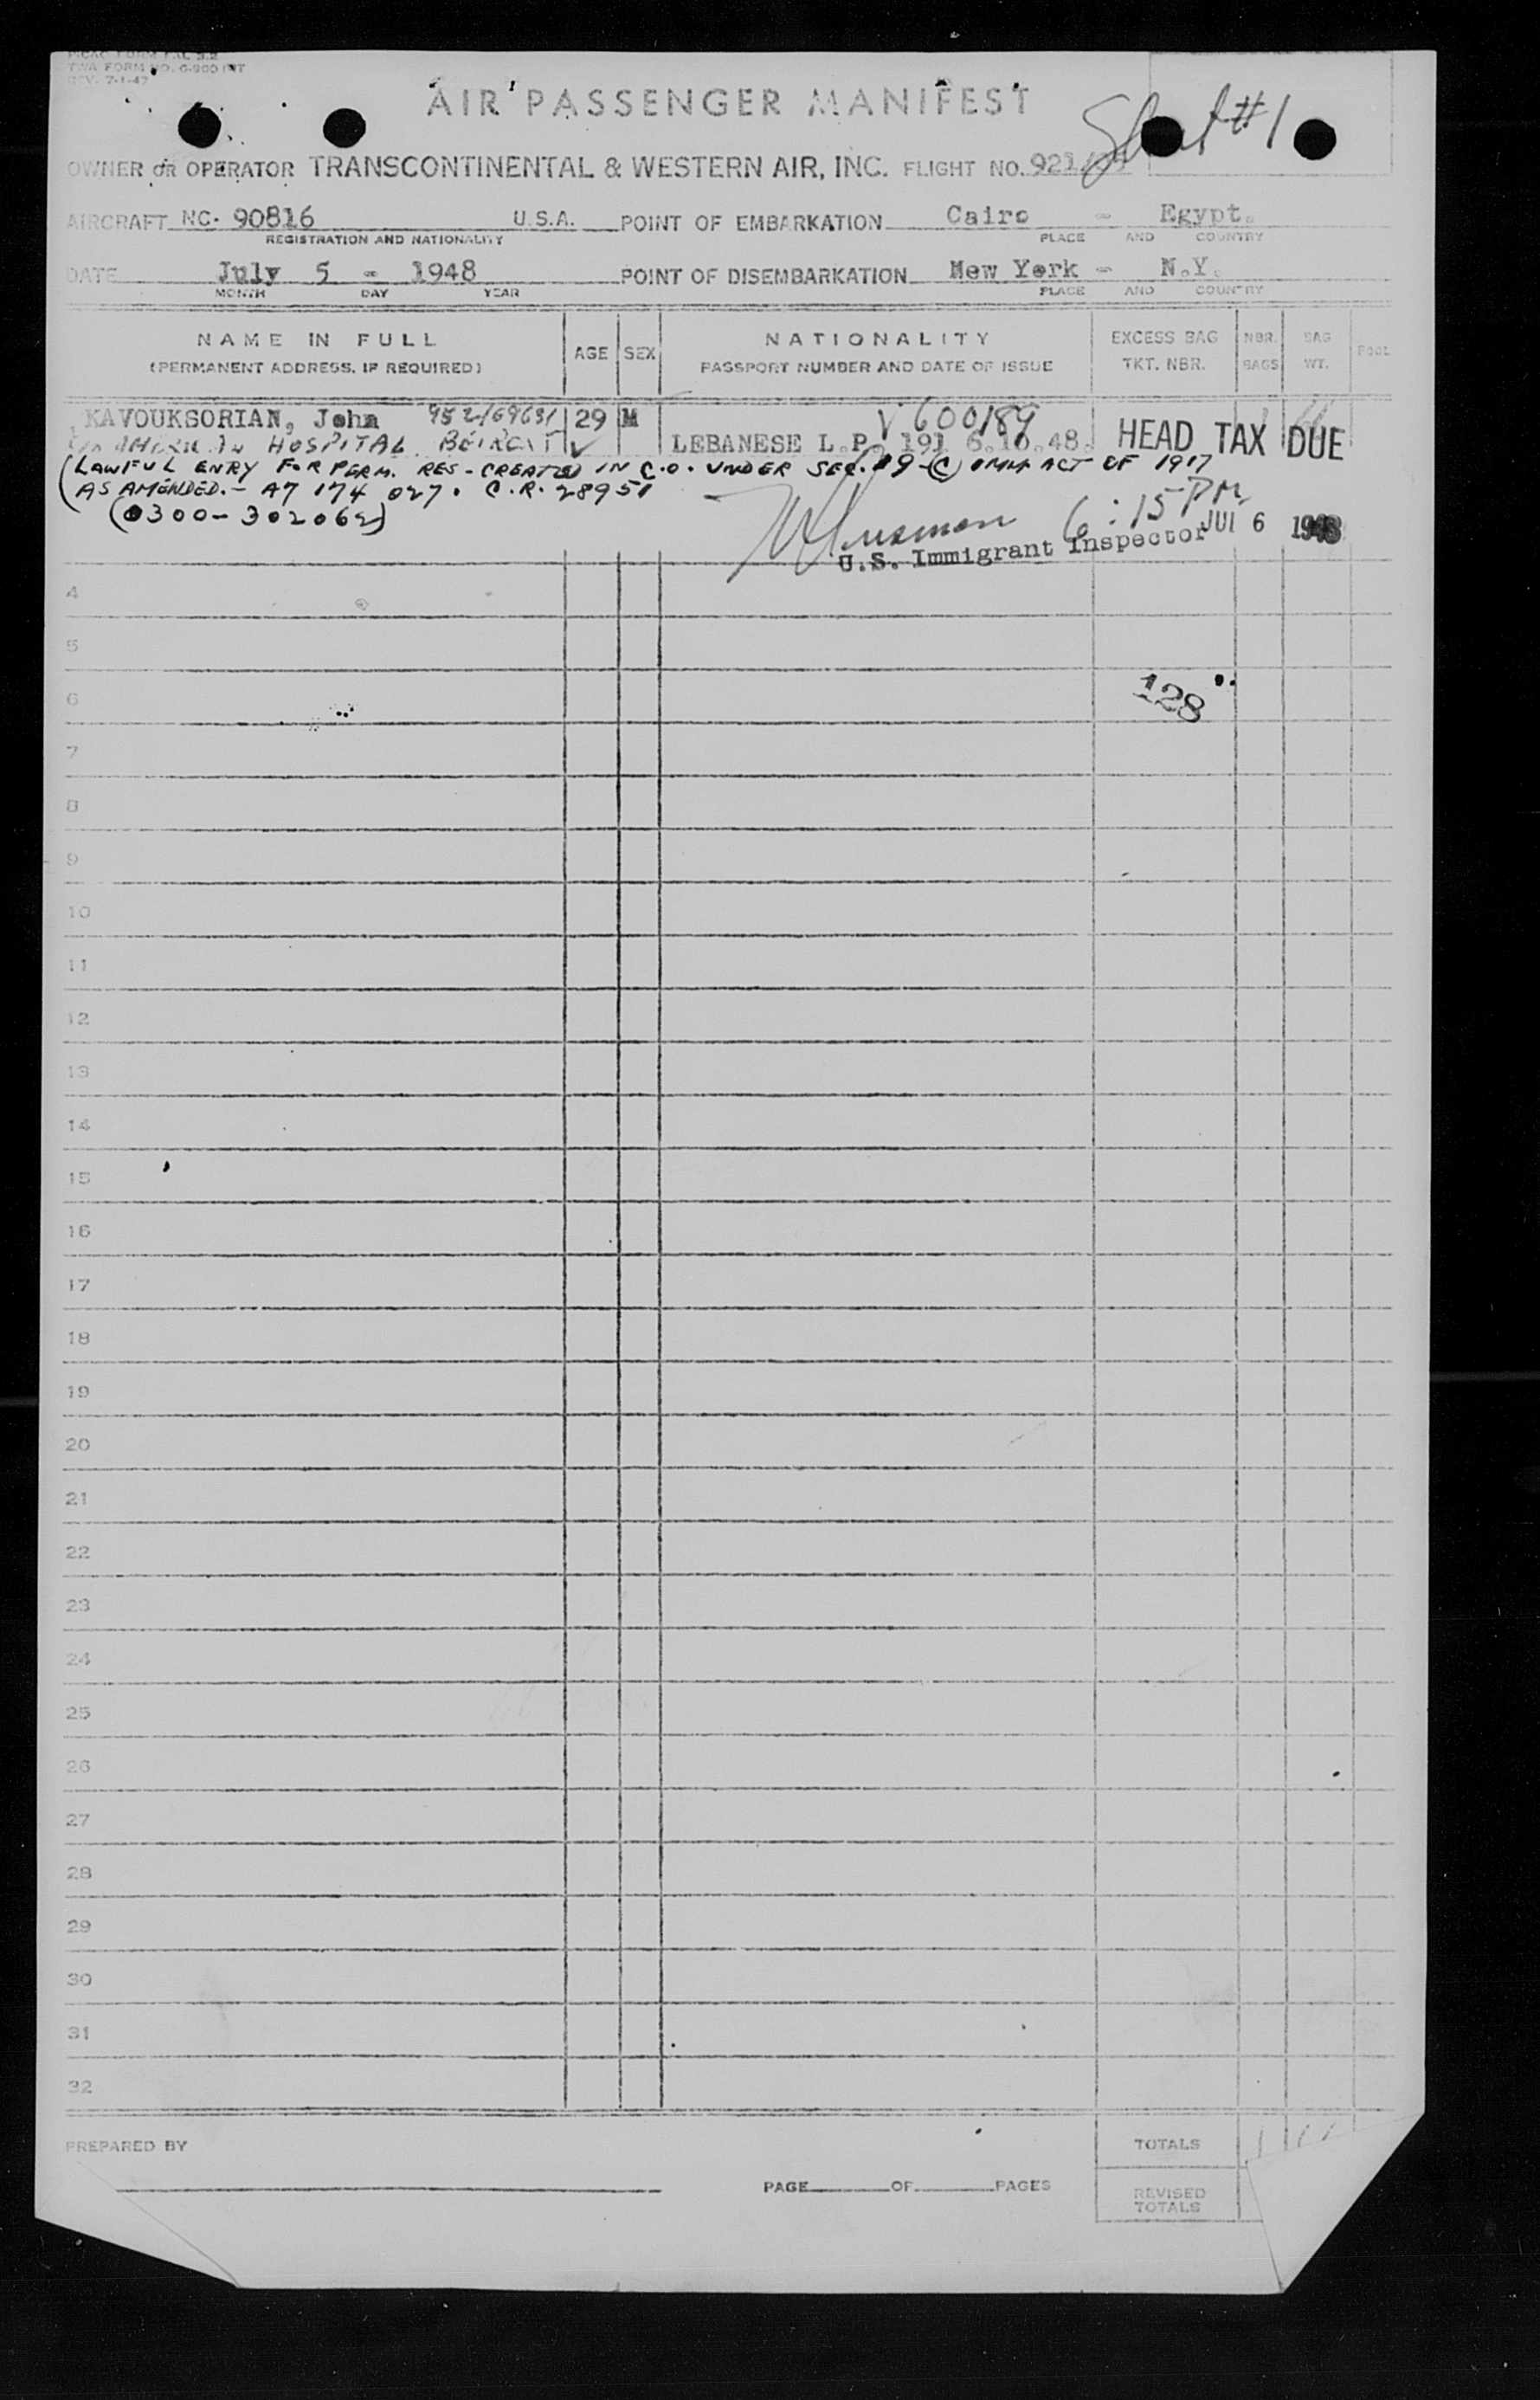 TWA FORM NO. 6-900 INT
REV. 7-1-47
AIR PASSENGER MANIFEST
Sheet #1
OWNER OR OPERATOR TRANSCONTINENTAL & WESTERN AIR, INC. FLIGHT NO. 921
AIRCRAFT NC- 90816 U.S.A. POINT OF EMBARKATION Cairo - Egypt.
REGISTRATION AND NATIONALITY PLACE AND COUNTRY
DATE July 5 - 1948 POINT OF DISEMBARKATION New York - N.Y.
MONTH DAY YEAR PLACE AND COUNTRY
NAME IN FULL AGE SEX NATIONALITY EXCESS BAG NBR. BAG POOL
(PERMANENT ADDRESS, IF REQUIRED) PASSPORT NUMBER AND DATE OF ISSUE TKT. NBR. BAGS WT.
KAVOUKSORIAN, John 952/69631 29 M V 600189
HOSPITAL BEIRUT LEBANESE L.P. 191 6.10.48. HEAD TAX DUE
(LAWFUL ENRY FOR PERM. RES - CREATED IN C.O. UNDER SEC. 19-(C) IMM ACT OF 1917
(AS AMENDED. - A7 174 027. C.R. 28951
(0300-302062)
6:15 PM
U.S. Immigrant Inspector JUL 6 1948
4
5
6
128
7
8
9
10
11
12
13
14
15
16
17
18
19
20
21
22
23
24
25
26
27
28
29
30
31
32
PREPARED BY TOTALS
PAGE OF PAGES REVISED
TOTALS